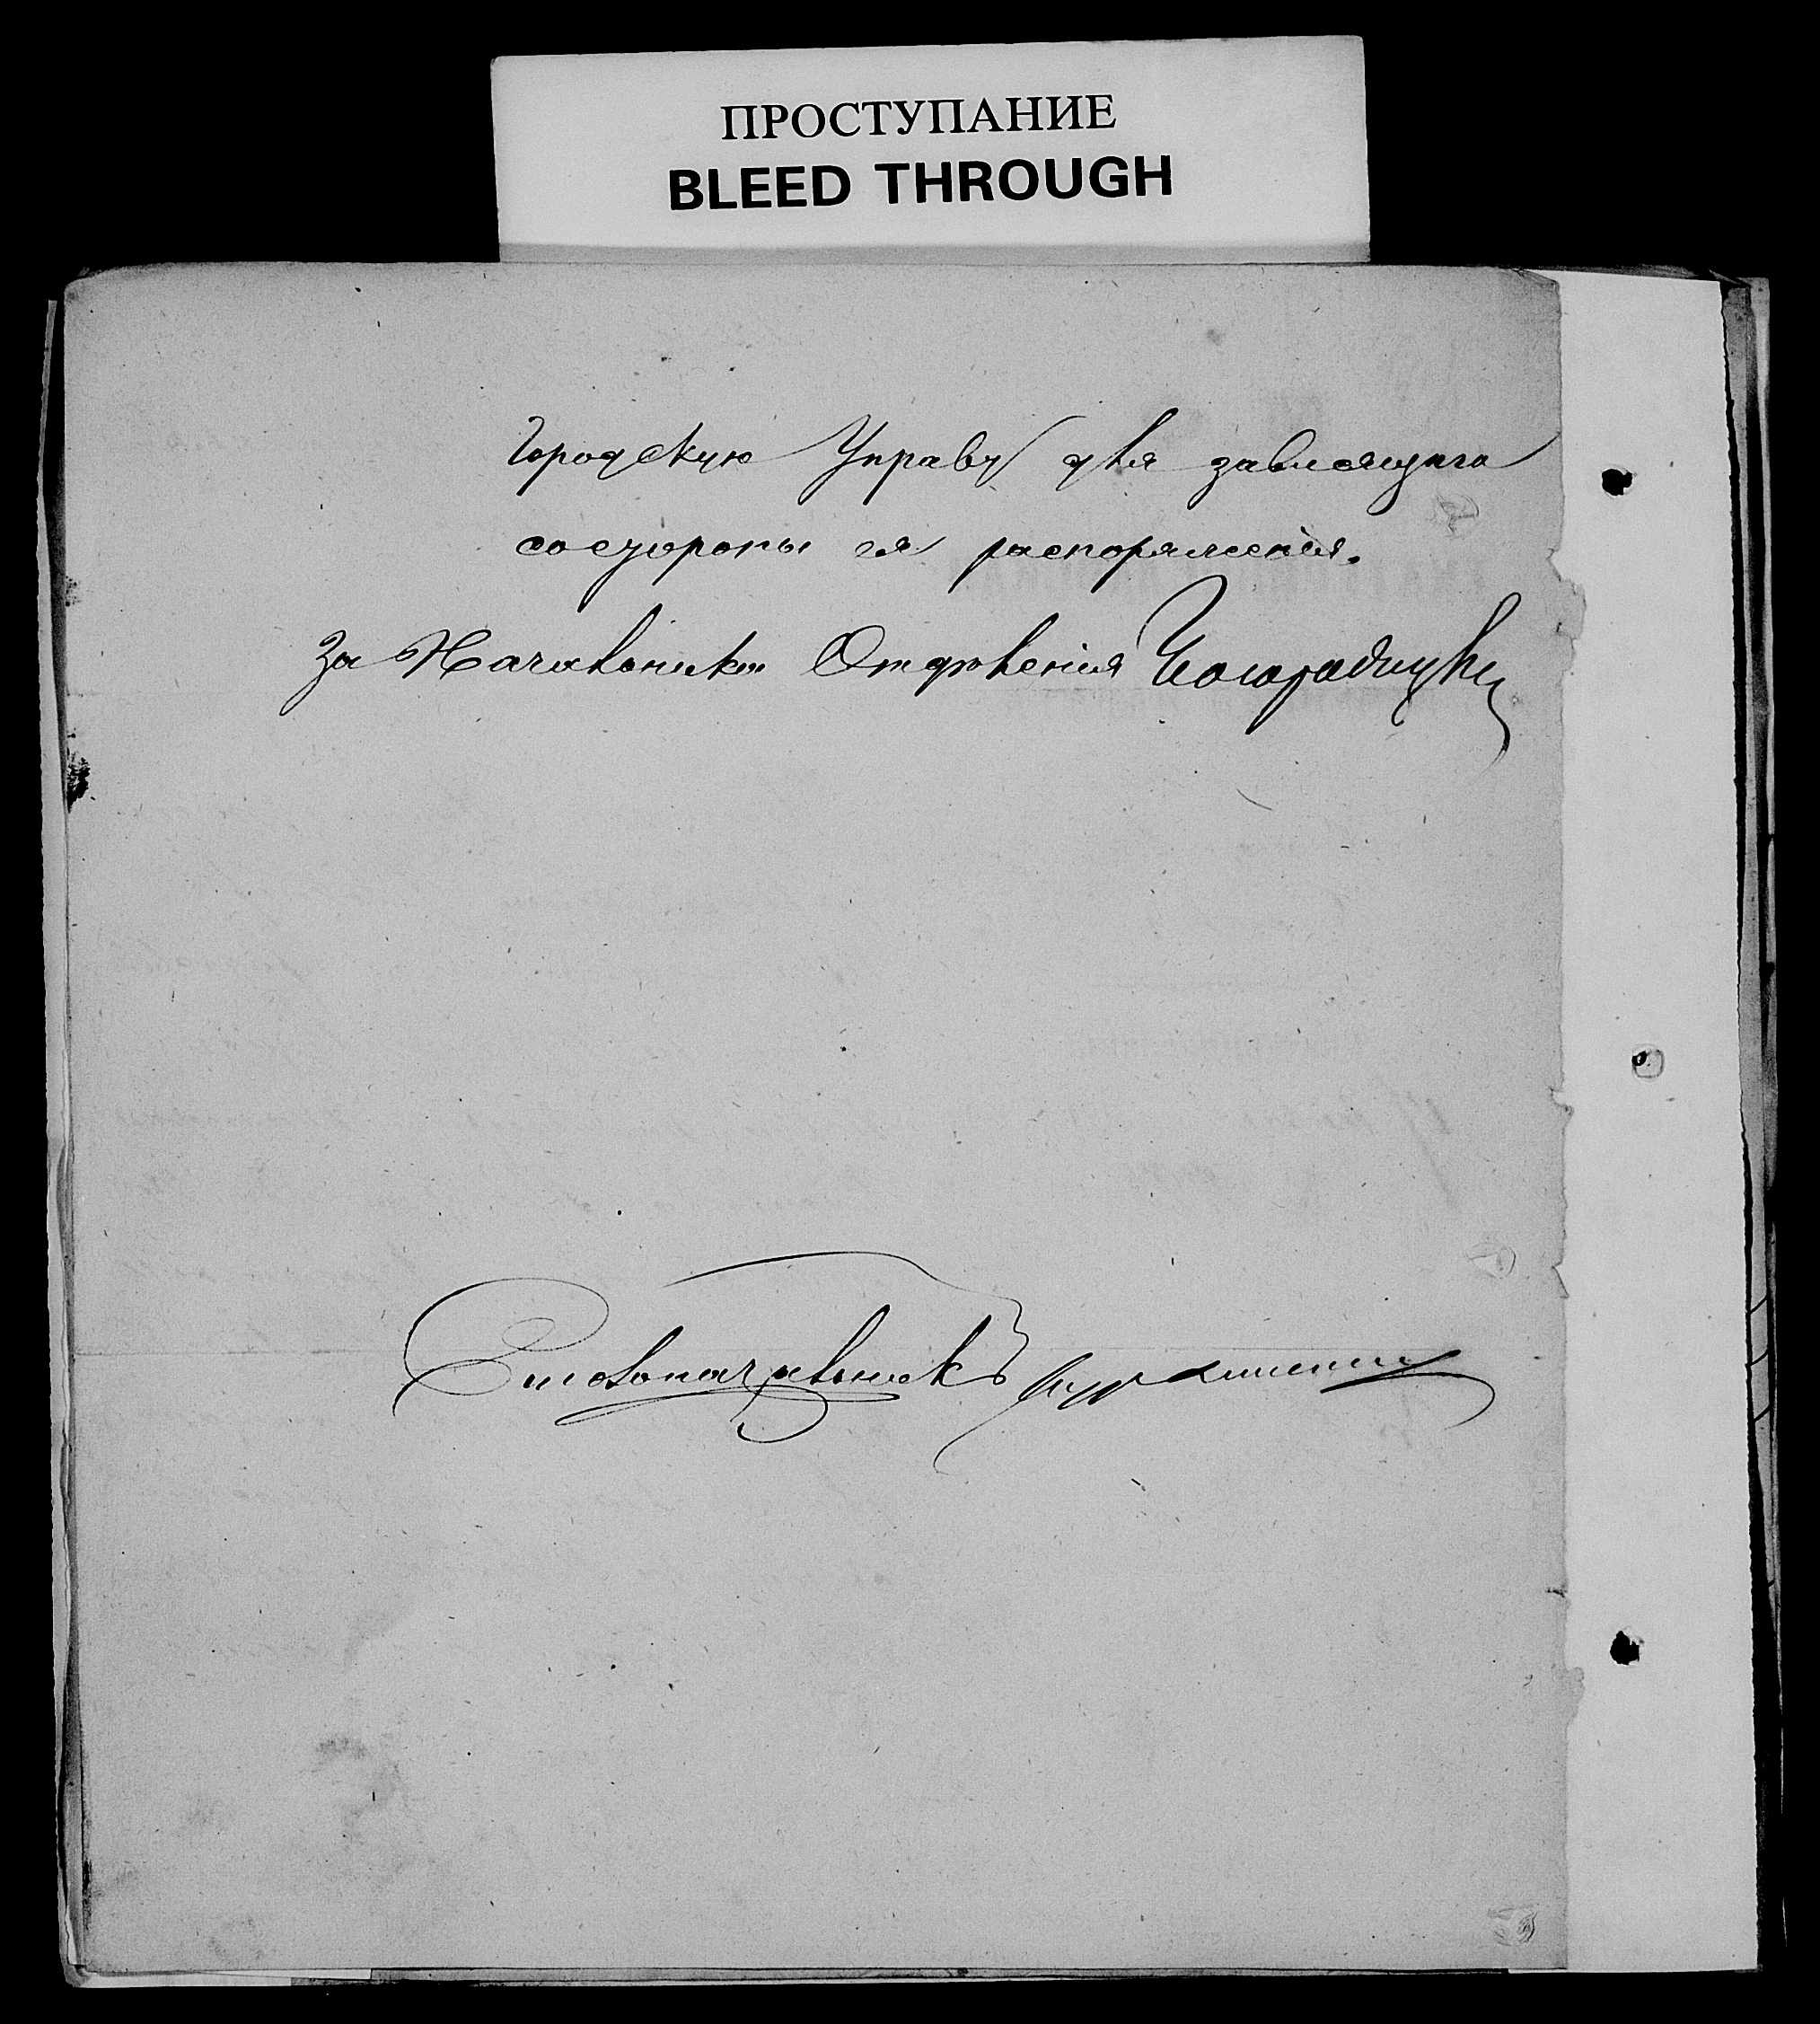 ПРОСТУПАНИЕ
BLEED THROUGH
Городскую Управу для зависящаго
со стороны ея распоряженія.
За Начальника Отдѣленія
Столоначальникъ